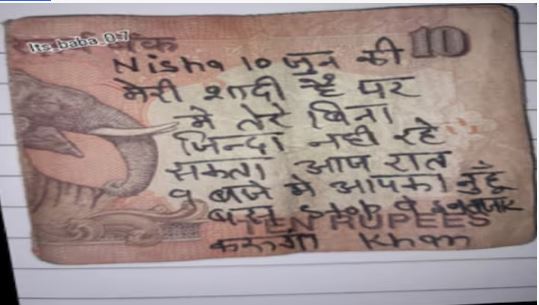 Its_baba_07
10
Nisha 10 जुन की
मेरी शादी है पर
मे तेरे बिना
जिन्दा नही रहे
सकता आज रात
9 बजे मे आपका
बस Stop पे
TEN RUPEES
करूगा Khan